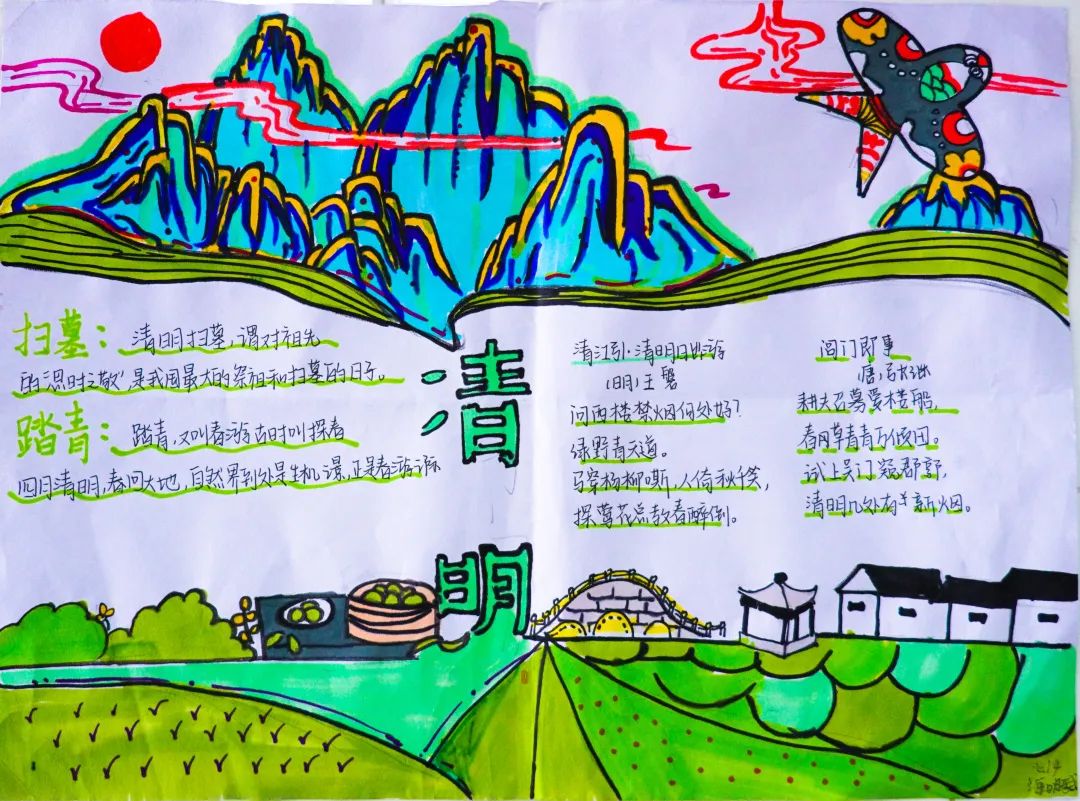 扫墓：清明扫墓，谓对祖先
的"思时之敬"是我国最大的祭祖和扫墓的日子。
踏青：踏青，又叫春游古时叫探春
四月清明，春回大地，自然界到处是生机
正是春游
清
明
清江引·清明日出游
(明)王磐
问西楼禁烟何处好？
绿野青天道。
马穿杨柳嘶，人倚秋千笑，
探莺花总教春醉倒。
阊门即事
耕夫召募爱楼船，
春风草青青万倾田。
试上吴门窥郡郭，
清明几处有新烟。